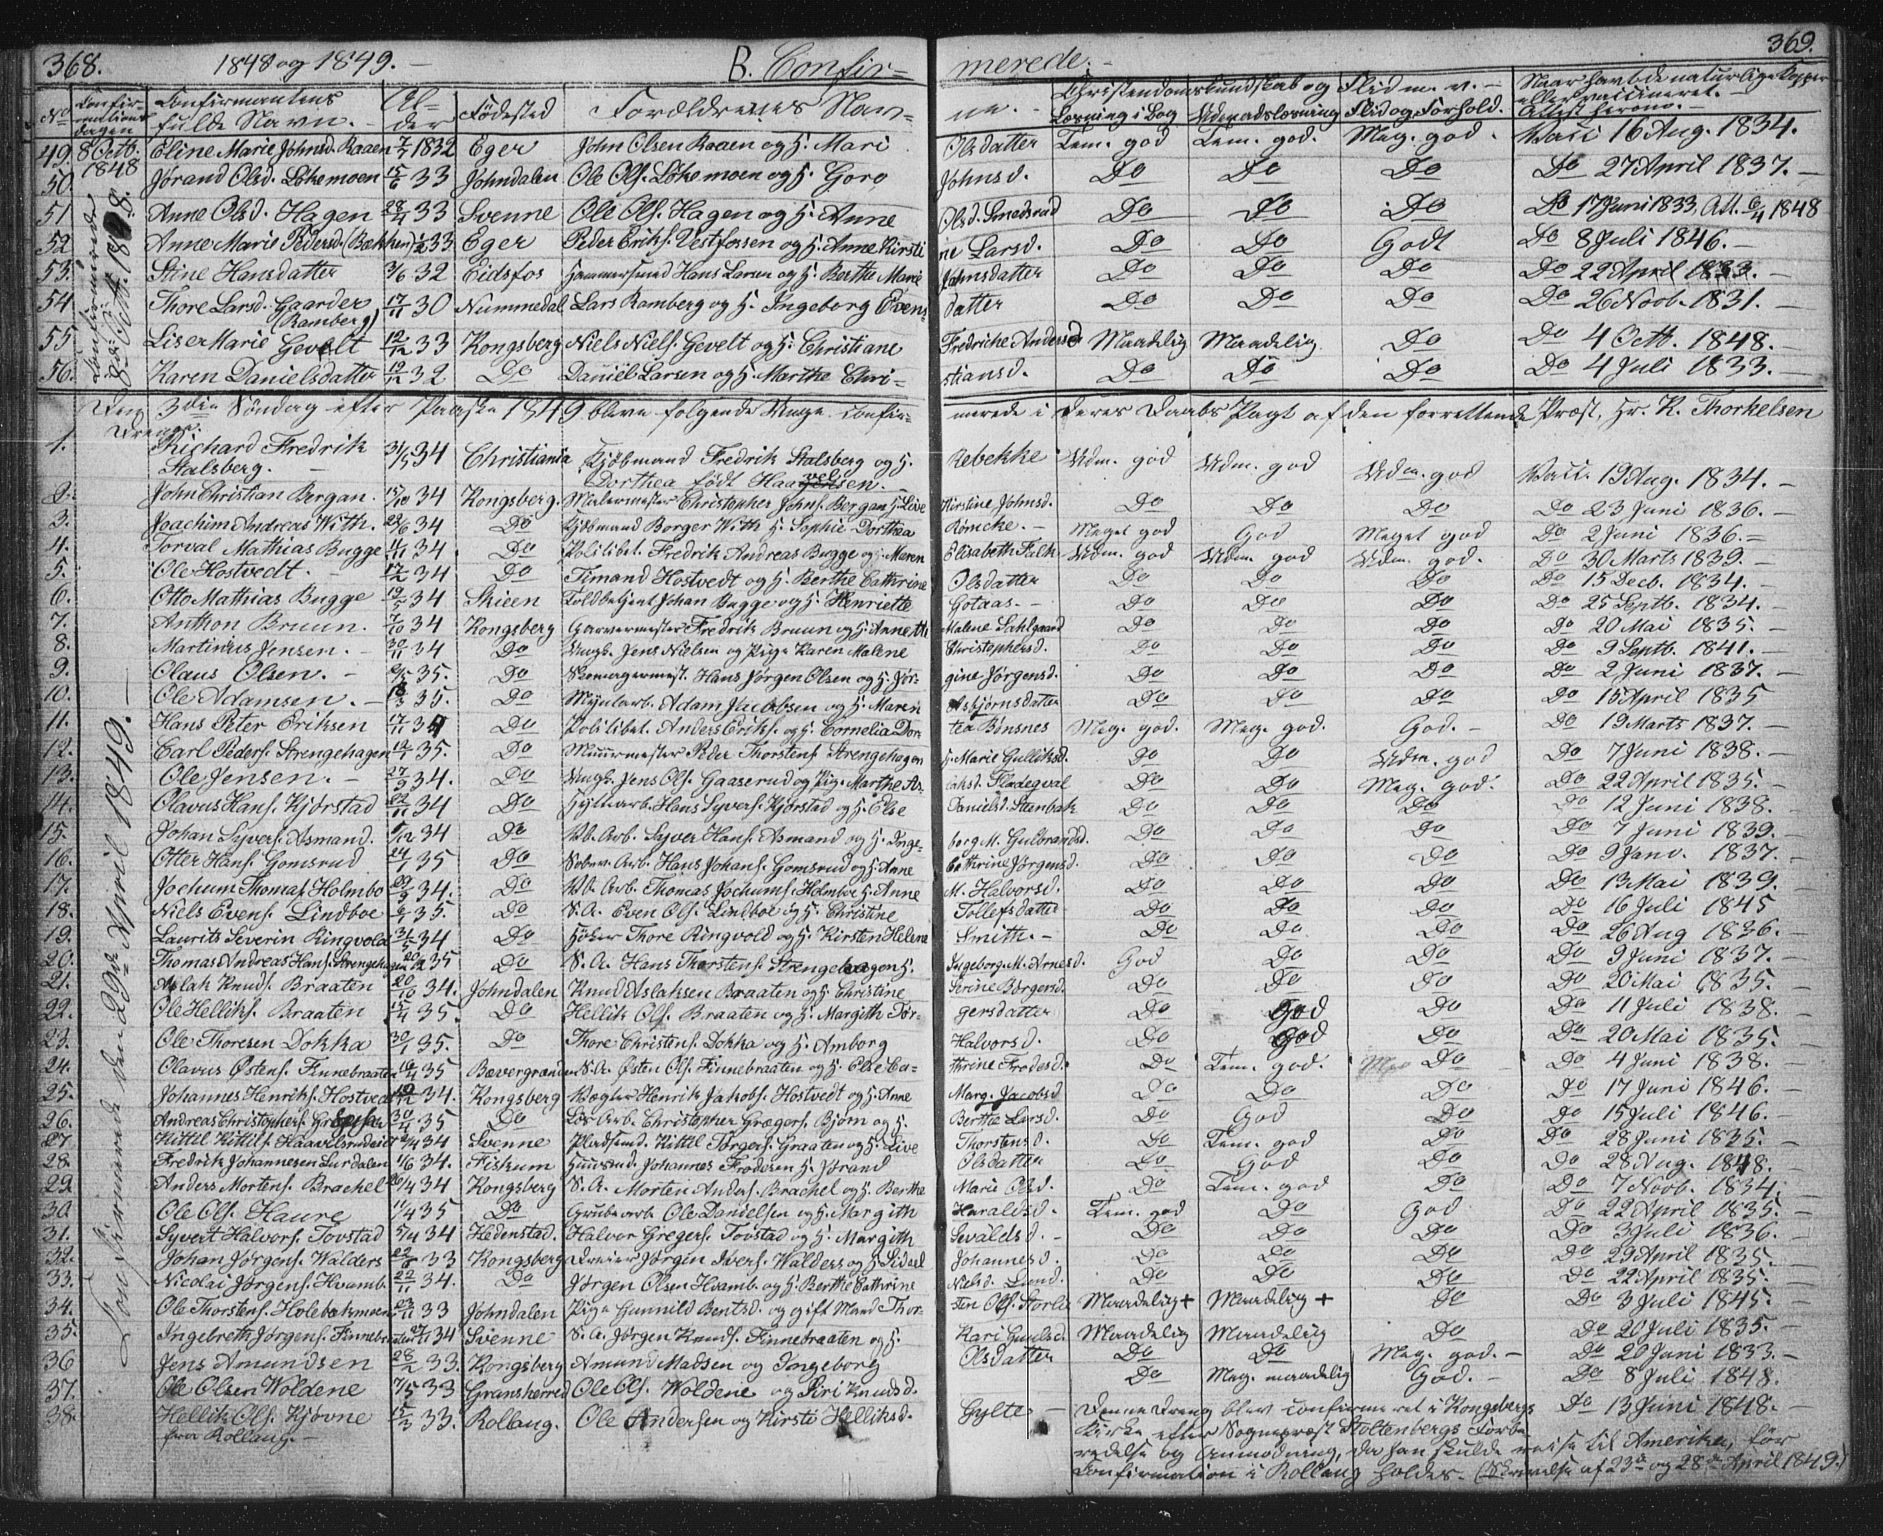 368. 1848 og 1849. — B. Confir= merede. — 369.
No Confirmations dagen Confirmantens fulde Navn. — Alder Fødested Forældrenes Nav= ne. — Christendomskundskab og Flid m. v. — Naar havt de naturlige Kopper eller vaccineret.
Læsning i Bog Udenadslæsning Flid og Forhold.
49. 8 Octb. 1848 Eline Marie Johnsd. Raaen 1832 Eger John Olsen Raaen og H. Mari Olsdatter Tem. god Tem. god. Meg. god. Vacc 16 Aug. 1834.
50. Jørand Olsd. Løkemoen 15/6 33 Johndalen Ole Ols. Løkemoen og H. Goro Johnsd. Do Do Do Do 27 April 1837. —
51. Anne Olsd. Hagen 28/4 33 Svenne Ole Ols. Hagen og H. Anne Olsd. Smedsrud Do Do Do Do 17 Juni 1833, Att. 6/4 1848
52 Anne Marie Pedersd. (Bækken) 33 Eger Peder Eriks. Vestfossen og H. Anne Kirsti ne Larsd. Do Do Godt Do 8 Juli 1846. —
53. Stine Hansdatter 3/6 32 Eidsfos Hammersmed Hans Larsen og H. Berthe Marie Johnsdatter Do Do Do Do 22 April 1833. —
54. Thore Larsd. Gaarder (Ramberg) 17/11 30 Nummedal Lars Ramberg og H. Ingeborg Evens= datter Do Do Do Do 26 Novb. 1831. —
55 Lise Marie Gevelt 12/12 33 Kongsberg Niels Niels. Gevelt og H. Christiane Fredricke Andersd Maadelig Maadelig Do Do 4 Octb. 1848. —
56. Karen Danielsdatter 19/12 32 Do Daniel Larsen og H. Marthe Chri= stiansd. Do Do Do Do 4 Juli 1833. —
Confirmerede 8de Octb. 1848.
Den 3die Søndag efter Paaske 1849 bleve følgende Unge confir= merede i deres Daabs Pagt af den forrettende Præst, Hr. K. Thorkelsen
Drenge.
Confirmerede den 29de April 1849. —
1. Richard Fredrik Stalsberg. — 31/5 34 Christiania Kjøbmand Fredrik Stalsberg og H. Dorthea født Haa Rebekke Udm. god Udm. god Udm. god Vacc. 19 Aug. 1834. —
2. John Christian Bergan. 15/10 34 Kongsberg. Malermester Christopher Johns. Bergan H. Live Kirstine Johnsd. Do Do Do Do 23 Juni 1836. —
3. Joachim Andreas With. 22/6 34 Do Kjøbmand Borger With H. Sophie Dorthea Rømcke. — Meget god God Meget god Do 2 Juni 1836. —
4. Torval Mathias Bugge 4/11 34. Do Politibet. Fredrik Andreas Bugge og H. Maren Elisabeth Falk Udm. god Udm. god Udm. god. Do 30 Marts 1839. —
5. Ole Hostvedt. — 17/2 34 Do Timand Hostvedt og H. Berthe Cathrine Olsdatter Do Do Do Do 15 Decb. 1834. —
6. Otto Mathias Bugge 19/5 34 Skieen Toldbetjent Johan Bugge og H. Henriette Gotaas. — Do Do Do Do 25 Septb. 1834. —
7. Anthon Bruun. 7/10 34 Kongsberg Garvermester Fredrik Bruun og H. Annethe Malene Dahlgaard Do Do Do Do 20 Mai 1835. —
8. Martinius Jensen. — 30/11 34 Do Ungk. Jens Nielsen og Pige Karen Malene Christophersd. Do Do Do Do 9 Septb. 1841. —
9. Olaus Olsen. — 35. Do Skomagermest. Hans Jørgen Olsen og H. Jør= gine Jørgensd. Do Do Do Do 2 Juni 1837. —
10. Ole Adamsen. — 18/3 35. Do Adam Jacobsen og H. Maren Asbjørnsdatter Do Do Do Do 15 April 1835
11. Hans Peter Eriksen 17/11 34 Do Politibet. Anders Eriks. og H. Cornelia Dor= tea Bønsnes Meg. god. Meg. god. God. — Do 19 Marts 1837. —
12. Carl Peders. Strengehagen 35. Do Muurmester Peder Thorstens. Strengehagen H. Marie Gulliksd. Do Do Udm. god Do 7 Juni 1838. —
13. Ole Jensen. — 27/3 34. Do Ungk. Jens Ols. Gaaserud og Pig. Marthe As= laksd. Fladegval Do Do Meg. god. Do 22 April 1835. —
14. Olavus Hans. Kjørstad 22/11 34 Do Hyttearb. Hans Syvers. Kjørstad og H. Else Danielsd. Stenbak Do Do Do Do 12 Juni 1838. —
15. Johan Syvers. Asmand. 34 Do Vb. Arb. Syver Hans. Asmand og H. Inge= borg M. Gulbrandsd. Do Do Do Do 7 Juni 1839. —
16. Otter Hans. Gomsrud 35 Do Hans Johans. Gomsrud og H. Anne Cathrine Jørgensd. Do Do Do Do 9 Janv. 1837. —
17. Jochum Thomas. Holmbo 20/9 34. Do Vb. Arb. Thomas Jochums. Holmboe H. Anne M. Halvorsd. Do Do Do Do 13 Mai 1839. —
18. Niels Evens. Lindboe 35. Do S. A. Even Ols. Lindboe og H. Christine Tollefsdatter Do Do Do Do 16 Juli 1845
19. Laurits Severin Ringvold 31/5 34 Do Høker Thore Ringvold og H. Kirsten Helene Smith. — Do Do Do Do 26 Aug 1836. —
20. Thomas Andreas Hans. Strengehagen 35 Do S. A. Hans Thorstens. Strengehagen H. Ingeborg M. Arnesd. God Do Do Do 9 Juni 1837. —
21. Aslak Knuds. Braaten 20/10 34. Johndalen Knud Aslaksen Braaten og H. Christine Serine Børgersd. Do Do Do Do 20 Mai 1835. —
22. Ole Helliks. Braaten 15/4 35. Do Hellik Ols. Braaten og H. Margith Tor= gersdatter Do God Do Do 11 Juli 1838. —
23. Ole Thoresen Dokka 30/1 35. Do Thore Christens. Dokka og H. Amborg Halvorsd. Do God Do Do 20 Mai 1835. —
24. Olavus Østens. Finnebraaten 16/4 35 Bævergrænden S. A. Østen Ols. Finnebraaten og H. Else Ca= thrine Fredesd. Do Tem. god. Do Do 4 Juni 1838. —
25. Johannes Henriks. Hostvedt 34. Kongsberg Vægter Henrik Jakobs. Hostvedt og H. Anne Marg. Jacobsd Do Do Do Do 17 Juni 1846. —
26. Andreas Christophers. 30/11 35 Do Arb. Christopher Grægers. Bjørn og H. Berthe Larsd. Do God Do Do 15 Juli 1846. —
27. Kittil Kittils. Kaarelsrudeie 34 Svenne Pladsmd. Kittil Torgers. Graaten og H. Live Thorstensd. Do Tem. god Do Do 28 Juni 1835. —
28. Fredrik Johannesen Lurdalen 1/6 34. Fiskum Huusmd. Johannes Fredesen H. Jørand Olsdatter Do God Do Do 28 Aug. 1848. —
29. Anders Mortens. Brachel 34 Kongsberg S. A. Morten Anders. Brachel og H. Berthe Marie Olsd. Do Tem. god Do Do 7 Novb. 1834.
30. Ole Ols. Haure 11/4 35 Do Grubearb. Ole Danielsen og H. Margith Haraldsd. Tem. god Do God Do 22 April 1835. —
31. Syvert Halvors. Tovstad 5/4 34 Hedenstad. Halvor Gregers. Tovstad og H. Margith Sevaldsd. — Do Do Do Do 3 Juli 1836. —
32. Johan Jørgens. Walders 22/8 33 Kongsberg Dreier Jørgen Ivers. Walders og H. Sidsel Johannesd. Do Do Do Do 29 April 1835. —
33. Nicolai Jørgens. Hvamb. 22/11 34. Do Jørgen Olsen Hvamb. og H. Berthe Cathrine Nielsd. Lund. Do Do Do Do 22 April 1835. —
34. Ole Thorstens. Holebakmoen 23/11 33 Johndalen Pige Gunnild Bentsd. og gift Mand Thor= sten Ols. Sorlie Maadelig + Maadelig + Do Do 3 Juli 1845. —
35. Ingebreth Jørgens. Finnebraaten 34 Svenne S. A. Jørgen Knuds. Finnebraaten og H. Kari Gunlsd. Maadelig Maadelig Do Do 20 Juli 1835. —
36 Jens Amundsen 28/2 33. Kongsberg Amund Madsen og Ingeborg Olsdatter Do Do Meg. god. — Do 20 Juni 1833. —
37. Ole Olsen Woldene 7/5 33 Gransherred Ole Ols. Woldene og Siri Knudsd. Do Meg. maadelig God. — Do 8 Juli 1848.
38. Hellik Ols. Kjøvne fra Rollaug. — 15/3 33. Rollaug. Ole Andersen og Kirsti Helliksd. Gylte — Denne Dreng blev confirmeret i Kongsbergs Do 13 Juni 1848. —
Kirke efter Sognepræst Stoltenbergs Forbe
redelse og Anmodning, da han skulde reise til Amerika, før
Confirmation i Rollaug holdes. (Skrivelse af 23de og 28de April 1849.)